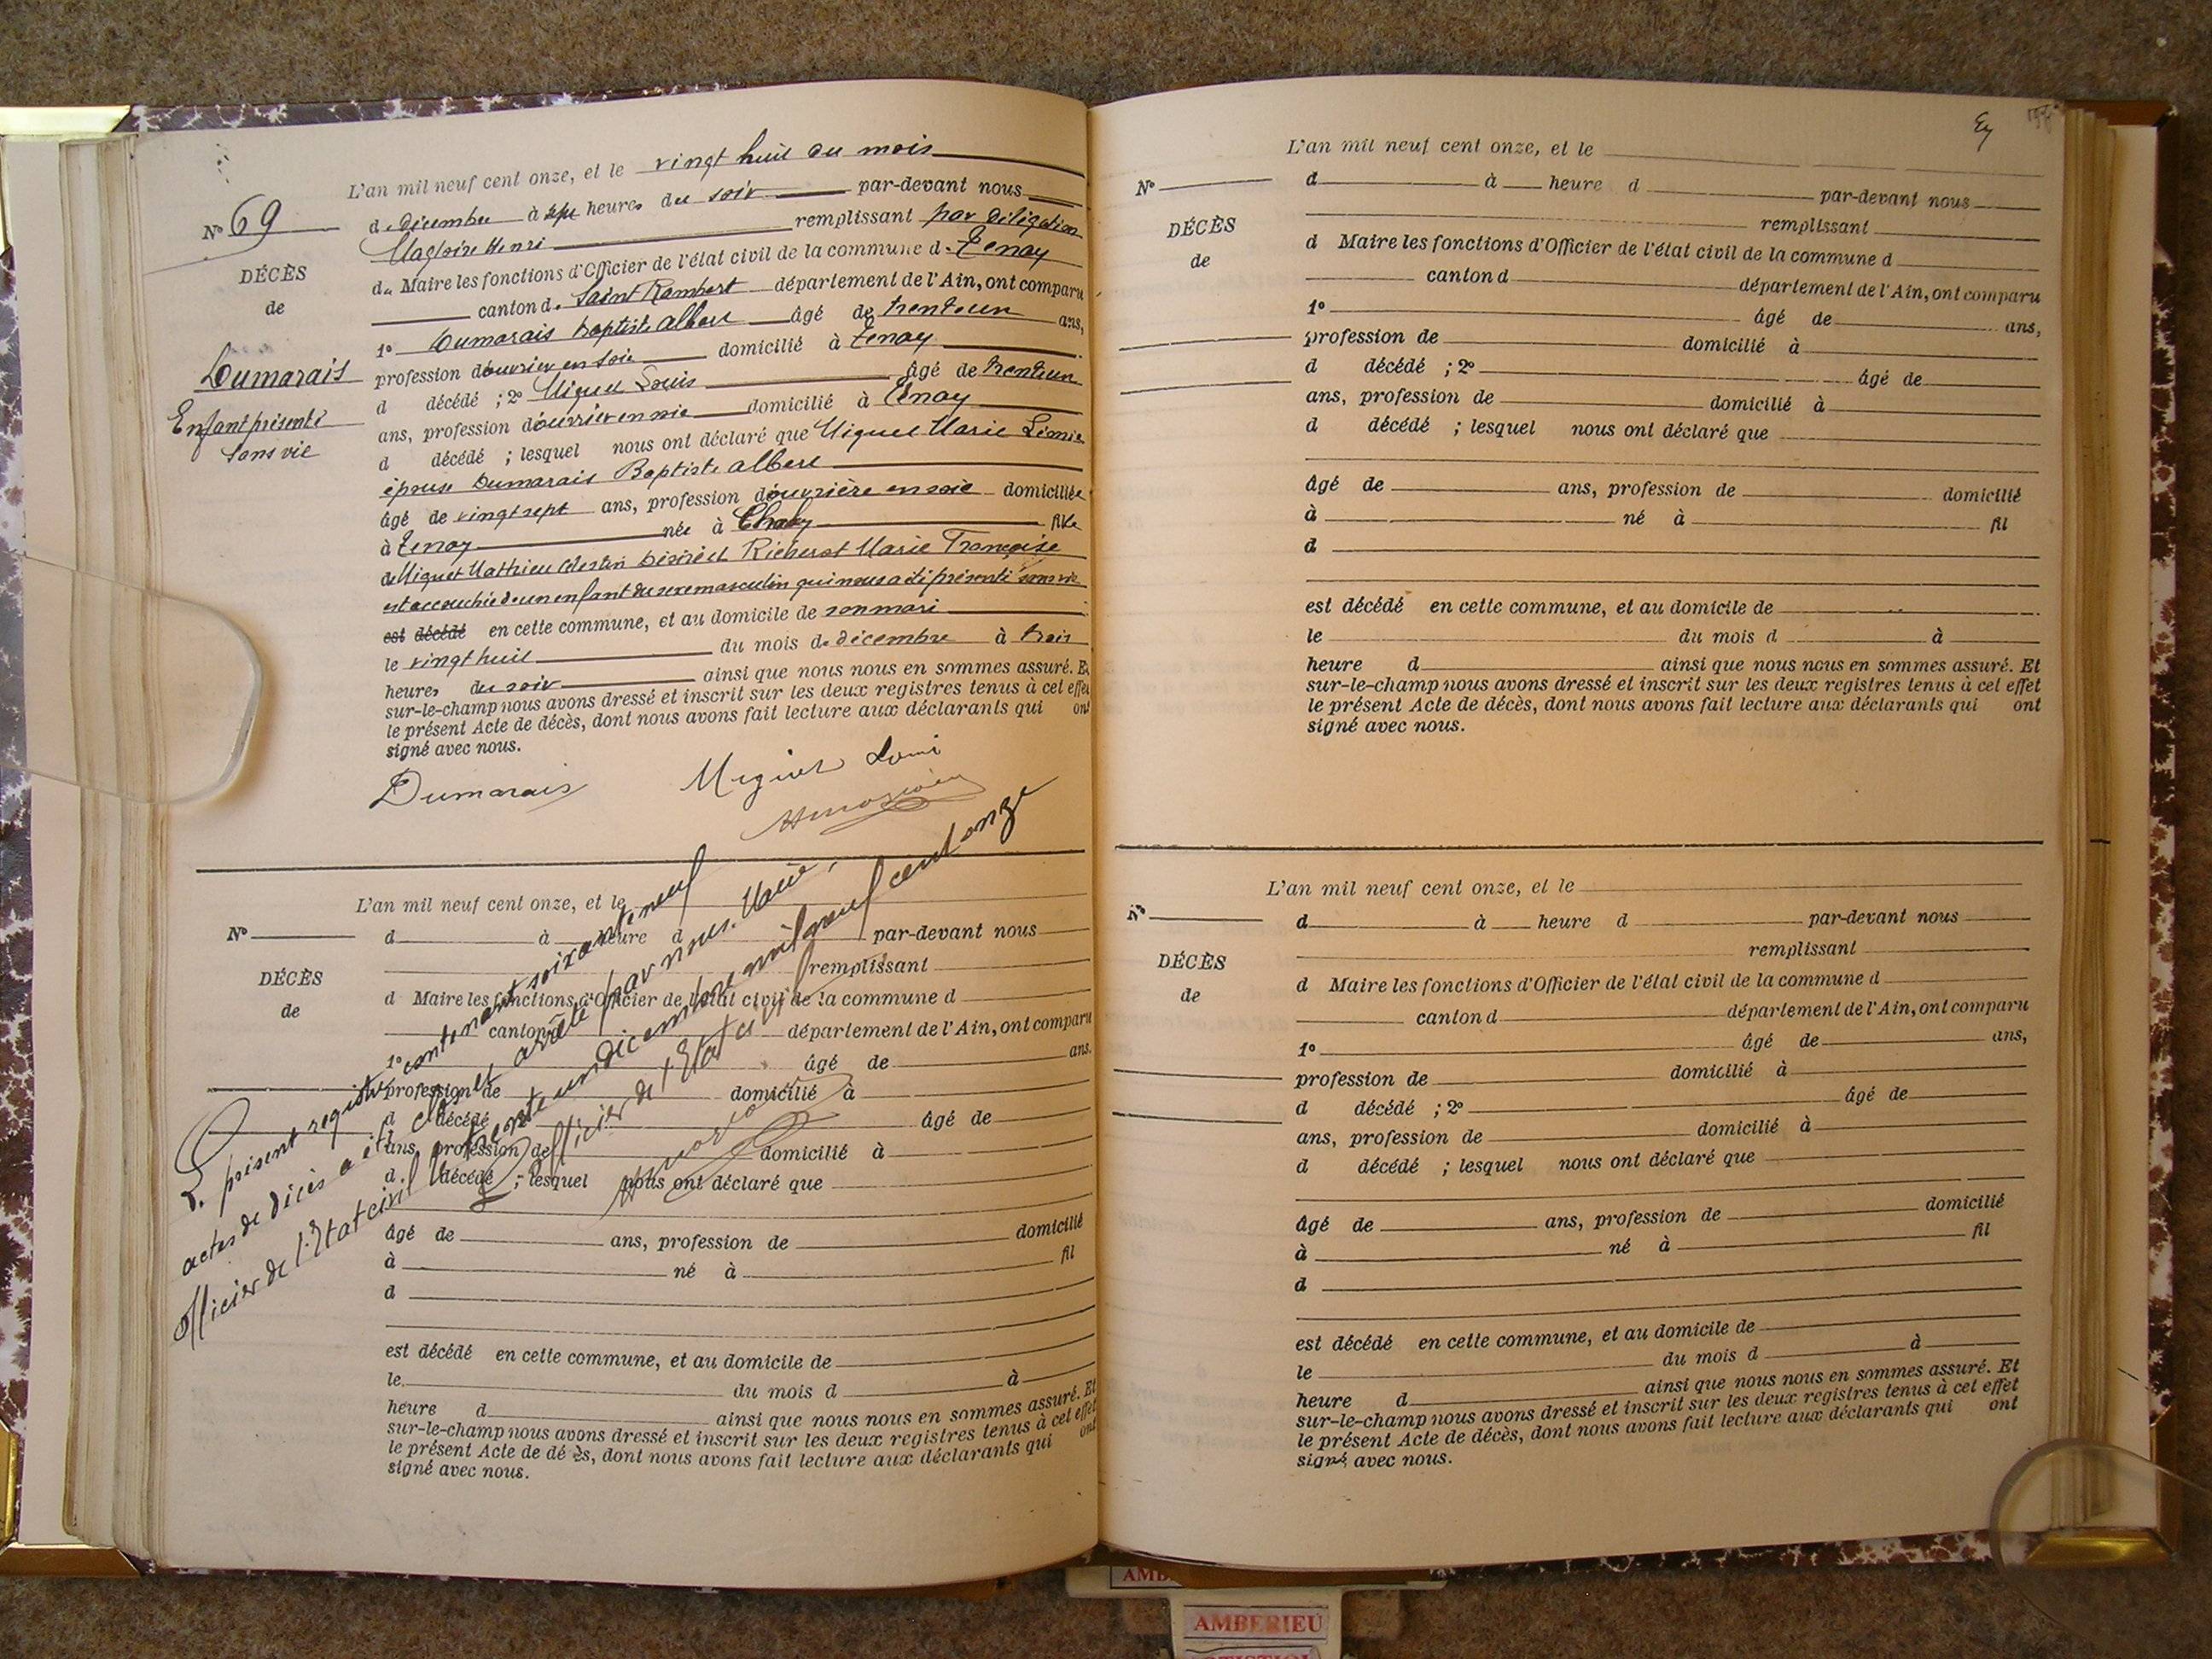 L'an mil neuf cent onze, et le vingt huit du mois
N° 69
de décembre à sept heures du soir par-devant nous
Magloire Henri remplissant par délégation
DÉCÈS
de
du Maire les fonctions d'Officier de l'état civil de la commune de Tenay
canton de Saint Rambert département de l'Ain, ont comparu
1° Dumarais Baptiste Albert âgé de trente un ans,
profession d'ouvrier en soie domicilié à Tenay
Dumarais
Enfant présenté
sans vie
d décédé ; 2° Miguet Louis âgé de trente un
ans, profession d'ouvrier en soie domicilié à Tenay
d décédé ; lesquel nous ont déclaré que Miguet Marie
épouse Dumarais Baptiste Albert
âgé de vingt sept ans, profession d'ouvrière en soie domiciliée
à Tenay née à Chaley fille
de Miguet Mathieu Célestin Désiré et Richerot Marie Françoise
est accouchée d'un enfant du sexe masculin qui nous a été présenté sans vie
est décédé en cette commune, et au domicile de son mari
le vingt huit du mois de décembre à trois
heures du soir ainsi que nous nous en sommes assuré. Et
sur-le-champ nous avons dressé et inscrit sur les deux registres tenus à cet effet
le présent Acte de décès, dont nous avons fait lecture aux déclarants qui ont
signé avec nous.
Dumarais Miguet Loui
L'an mil neuf cent onze, et le
N°
d à heure d par-devant nous
remplissant
DÉCÈS
de
d Maire les fonctions d'Officier de l'état civil de la commune d
canton d département de l'Ain, ont comparu
1° âgé de ans.
profession de domicilié à
d décédé âgé de
ans, profession de domicilié à
d décédé ; lesquel nous ont déclaré que
âgé de ans, profession de domicilié
à né à fil
d
est décédé en cette commune, et au domicile de
le du mois d à
heure d ainsi que nous nous en sommes assuré. Et
sur-le-champ nous avons dressé et inscrit sur les deux registres tenus à cet effet
le présent Acte de dé ès, dont nous avons fait lecture aux déclarants qui ont
signé avec nous.
Le présent registre contenant soixante neuf
actes de décès a été clos et arrêté par nous, Maire,
officier de l'Etat civil le trente un décembre mil neuf cent onze
L'officier de l'Etat civil
L'an mil neuf cent onze, et le
N°
d à heure d par-devant nous
remplissant
DÉCÈS
de
d Maire les fonctions d'Officier de l'état civil de la commune d
canton d département de l'Ain, ont comparu
1° âgé de ans,
profession de domicilié à
d décédé ; 2° âgé de
ans, profession de domicilié à
d décédé ; lesquel nous ont déclaré que
âgé de ans, profession de domicilié
à né à fil
d
est décédé en cette commune, et au domicile de
le du mois d à
heure d ainsi que nous nous en sommes assuré. Et
sur-le-champ nous avons dressé et inscrit sur les deux registres tenus à cet effet
le présent Acte de décès, dont nous avons fait lecture aux déclarants qui ont
signé avec nous.
L'an mil neuf cent onze, et le
N°
d à heure d par-devant nous
remplissant
DÉCÈS
de
d Maire les fonctions d'Officier de l'état civil de la commune d
canton d département de l'Ain, ont comparu
1° âgé de ans,
profession de domicilié à
d décédé ; 2° âgé de
ans, profession de domicilié à
d décédé ; lesquel nous ont déclaré que
âgé de ans, profession de domicilié
à né à fil
d
est décédé en cette commune, et au domicile de
le du mois d à
heure d ainsi que nous nous en sommes assuré. Et
sur-le-champ nous avons dressé et inscrit sur les deux registres tenus à cet effet
le présent Acte de décès, dont nous avons fait lecture aux déclarants qui ont
signé avec nous.
AMBERIEU